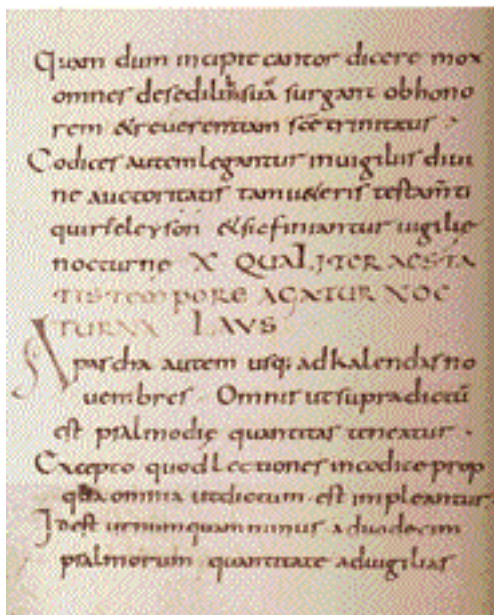 Quam dum incipit cantor dicere mox
omnes de sedilib; suis surgant ob hono
rem & reuerentiam scę trinitatis ·
Codices autem legantur in uigiliis diui
nę auctoritatis tam u&eris testam̄ti
quirieleyson & sic finiantur uigilię
nocturnę X QUALITER AESTA
TIS TEMPORE AGATUR NOC
TURNA LAUS
A pascha autem usq; ad kalendas no
uembres · Omnis ut supra dictū
est psalmodię quantitas teneatur ·
Excepto quod lectiones in codice prop
omnia ut dictum · est impleantur ·
Id est ut numquam minus a duodecim
psalmorum quantitate ad uigilias